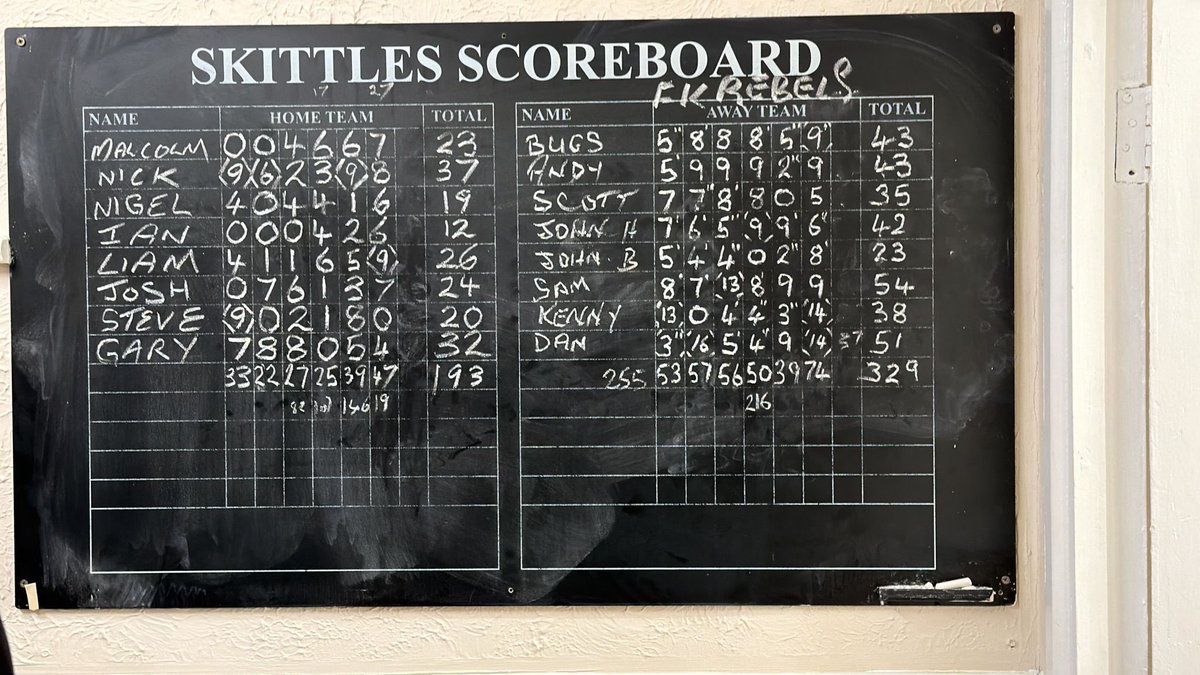 SKITTLES SCOREBOARD
17 27
FK REBELS
NAME HOME TEAM TOTAL
MALCOLM 0 0 4 6 6 7 23
NICK (9) (6) 2 3 (9) 8 37
NIGEL 4 0 4 4 1 6 19
IAN 0 0 0 4 2 6 12
LIAM 4 1 1 6 5 (9) 26
JOSH 0 7 6 1 3 7 24
STEVE (9) 0 2 1 8 0 20
GARY 7 8 8 0 5 4 32
33 22 27 25 39 47 193
82 107 146 19
NAME AWAY TEAM TOTAL
BUGS 5" 8 8 8 5 (9) 43
ANDY 5' 9 9 9 2" 9 43
SCOTT 7 7" 8' 8 0 5 35
JOHN H 7' 6 5" (9) 9 6" 42
JOHN B 5' 4 4" 0 2" 8' 23
SAM 8 7' (13) 8 9 9 54
KENNY (13) 0 4 4 3" (14) 38
DAN 3" (16) 5' 4' 9 (14) 37 51
255 53 57 56 50 39 74 329
216